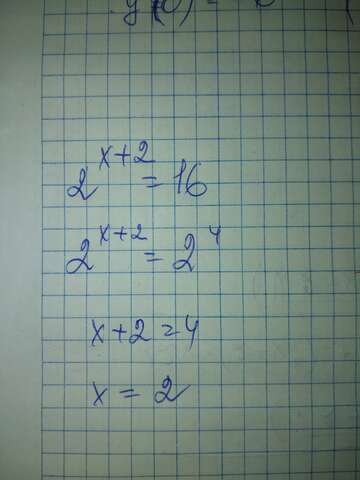 2^{x+2} = 16
2^{x+2} = 2^4
x+2=4
x = 2